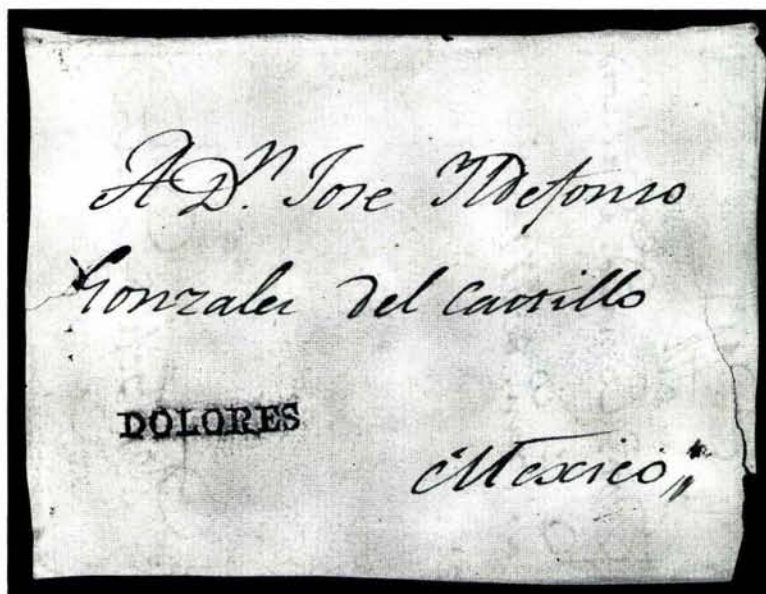 A Dn. Jose Yldefonso
Gonzales del Castillo
DOLORES
Mexico,,